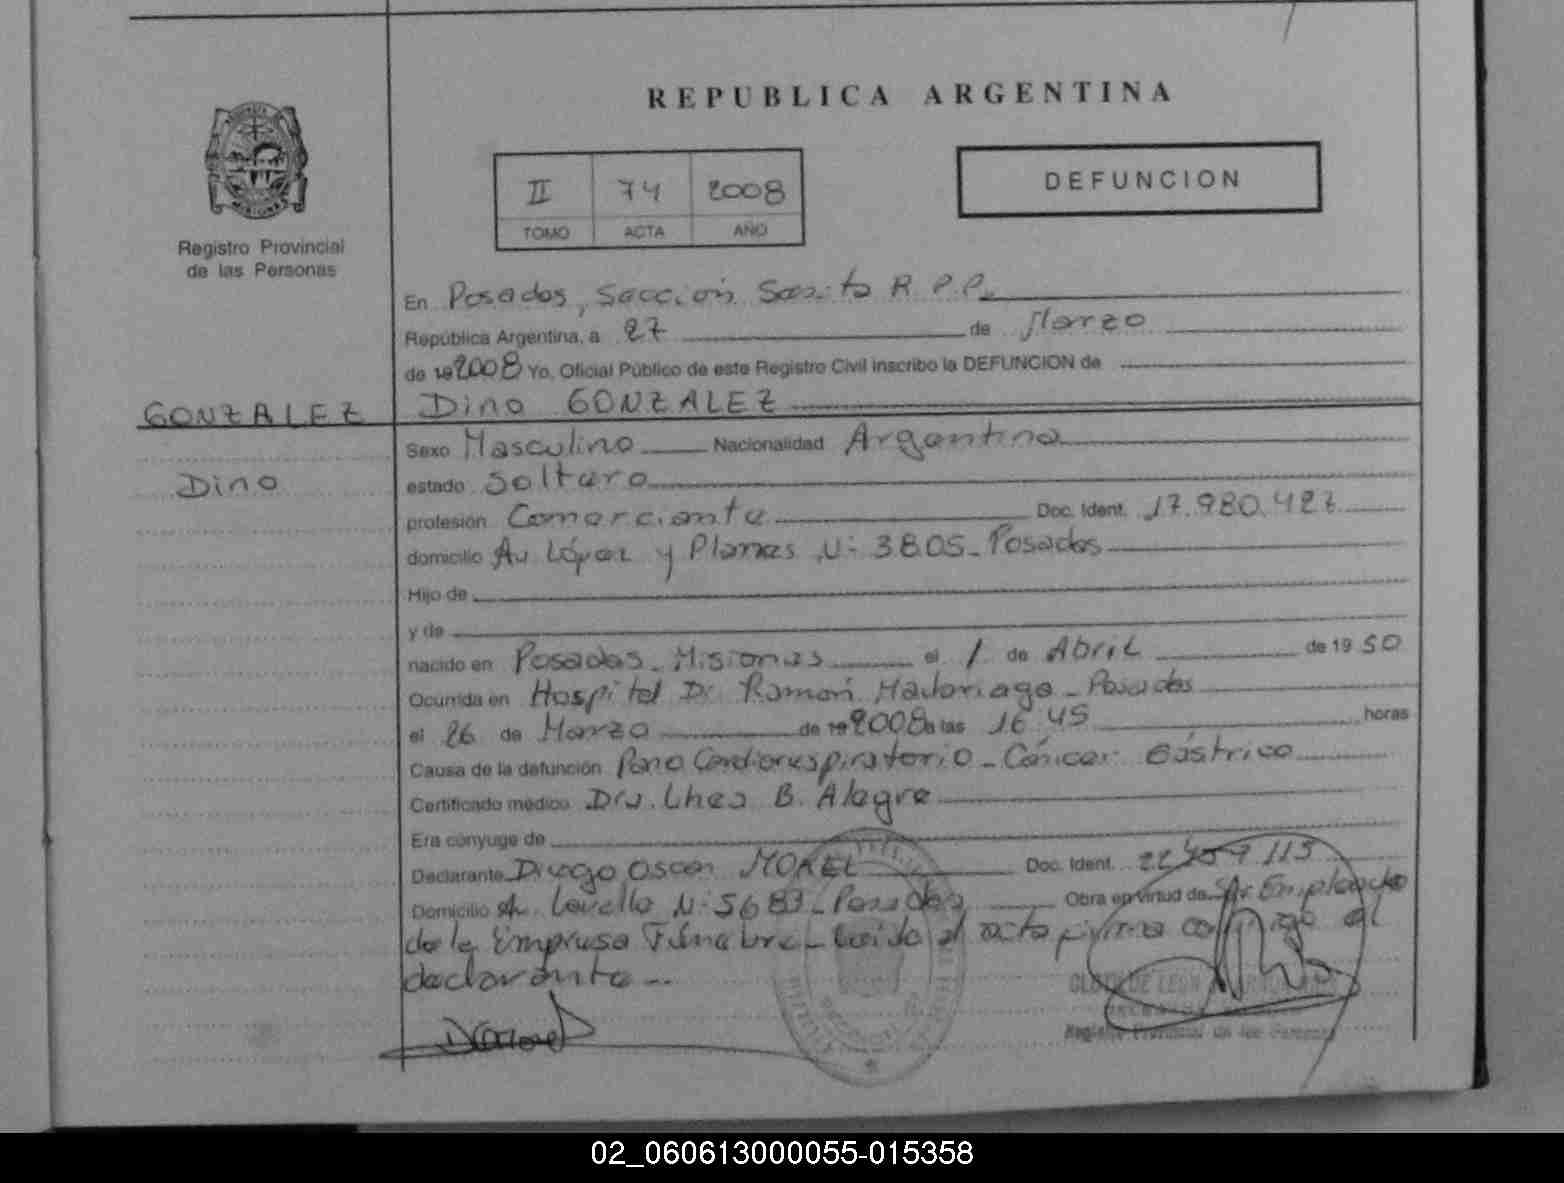 REPUBLICA ARGENTINA
II 74 2008
TOMO ACTA AÑO
DEFUNCION
MISIONES
Registro Provincial
de las Personas
En Posadas, Sección Sexta R.P.P.
República Argentina, a 27 de Marzo
de 19 2008 Yo, Oficial Público de este Registro Civil inscribo la DEFUNCION de
GONZALEZ
Dino
Dino GONZALEZ
Sexo Masculino Nacionalidad Argentina
estado Soltero
profesión Comerciante Doc. Ident. 17.980.427
domicilio Av López y Planes N: 3805 - Posadas
Hijo de
y de
nacido en Posadas - Misiones el 1 de Abril de 19 50
Ocurrida en Hospital Dr. Ramón Madariaga - Posadas
el 26 de Marzo de 19 2008 a las 16:45 horas
Causa de la defunción Paro Cardiorespiratorio - Cáncer Gástrico
Certificado médico Dra. B. Alegre
Era cónyuge de
Declarante Diego Oscar MOREL Doc. Ident.
Domicilio Av. N: 5683 - Posadas Obra en virtud de Ser Empleado
de la Empresa Fúnebre - Leída el acta firma conmigo el
declarante -
Registro Provincial de las Personas
02_060613000055-015358